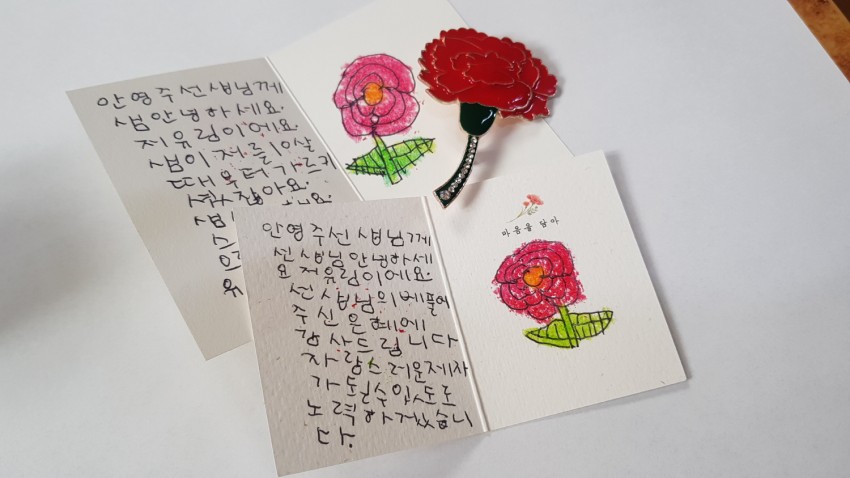 안영주선생님께
샘안녕하세요.
저유림이에요
샘이저를10살
때부터가르치
셨잖아요.
안영주선생님께
선생님안녕하세
요저유림이에요.
선생님의베풀어
주신은혜에
감사드립니다
자랑스러운제자
가될수있도록
노력하겠습니
다.
마음을 담아